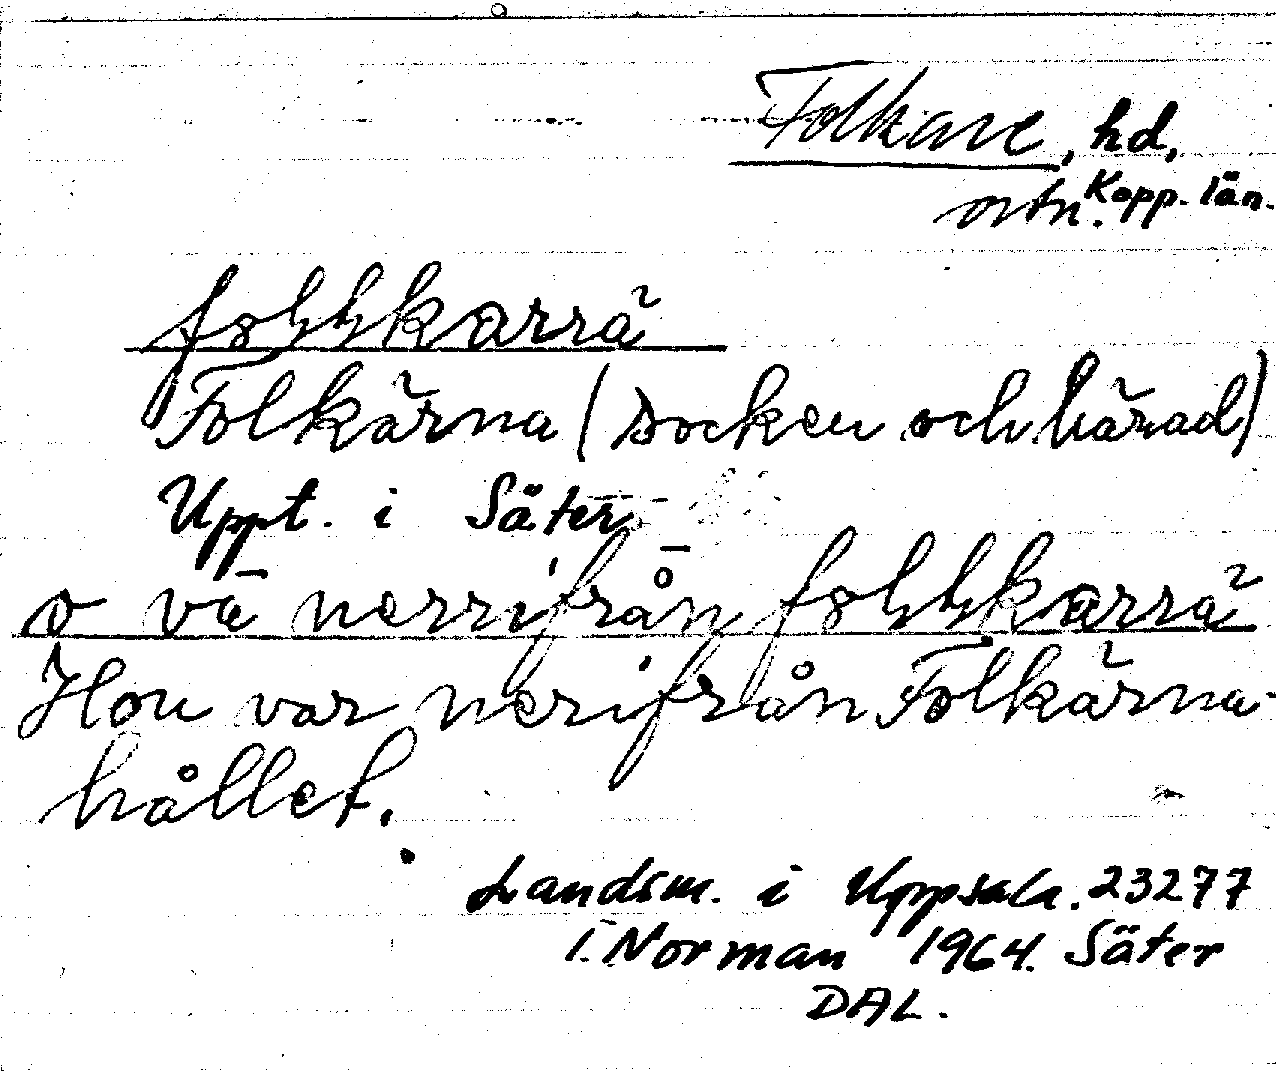 Folkare, hd,
ortn. Kopp. län.
follkarrä
Folkärna (socken och härad)
Uppt. i Säter
o vā nerrifrån follkarrä
Hon var nerifrån Folkärna-
hållet.
Landsm. i Uppsala. 23277
I. Norman 1964. Säter
DAL.